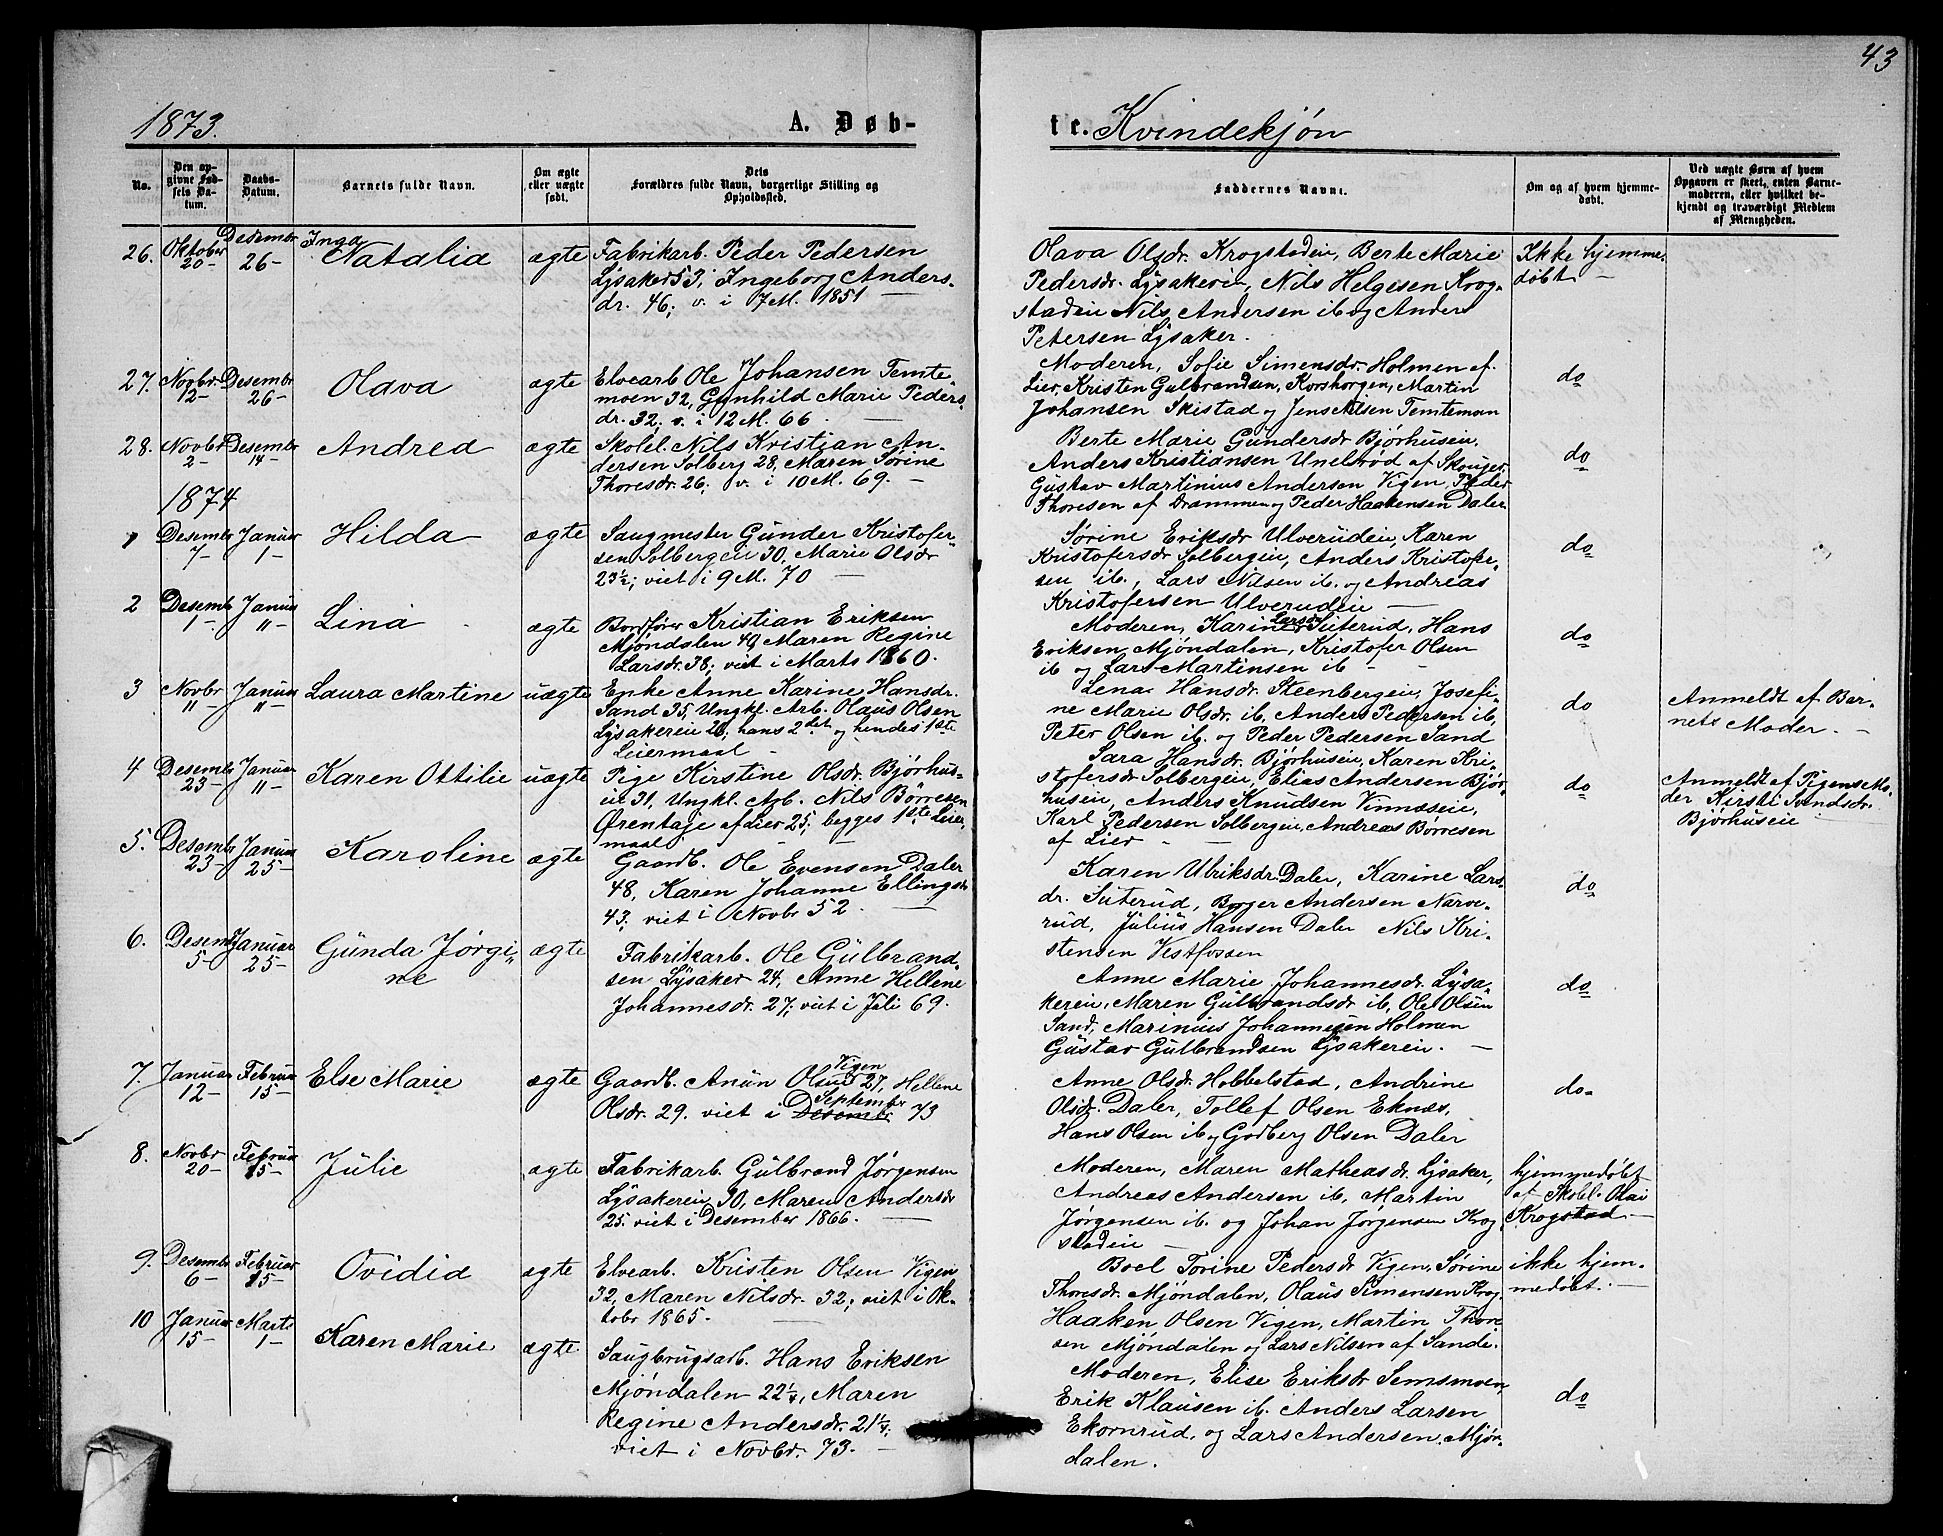 43
1873.
A. Døb-
te. Kvindekjøn
No.
Den opgivne Fødsels Datum.
Daabs-Datum.
Barnets fulde Navn.
Om ægte eller uægte født.
Dets Forældres fulde Navn, borgerlige Stilling og Opholdssted.
Faddernes Navne.
Om og af hvem hjemmedøbt.
Ved uægte Børn af hvem Opgaven er skeet, enten Barnemoderen, eller hvilket bekjendt og troværdigt Medlem af Menigheden.
26. Oktober 20- Desembr 26- Inga Natalia ægte
Fabrikarb. Peder Pedersen
Lysaker 53, Ingeborg Anders-
dr. 46; v. i 7 M. 1851 —
Olava Olsdr. Krogstadeie, Berte Marie
Pedersdr. Lysakerei, Nils Helgesen Krog-
stadeie Nils Andersen ib og Anders
Petersen Lysaker.
Ikke hjemme-
døbt —
27. Novbr 12- Desembr 26- Olava ægte
Elvearb Ole Johansen Temte-
moen 32, Gunhild Marie Peders-
dr. 32; v. i 12 M. 66 —
Moderen, Sofie Simensdr. Holmen af
Lier, Kristen Gulbrandsen, Korshorgen, Martin
Johansen Skistad og Jens Nilsen Temteman
do
28. Novbr 2- Desembr 14- Andrea ægte
Skolel. Nils Kristian An-
dersen Solberg 28, Maren Sørine
Thoresdr. 26; v. i 10 M. 69. —
Berte Marie Gundersdr Bjørhuseie,
Anders Kristiansen Unelsrød af Skouger,
Gustav Martinius Andersen Vigen, Peder
Thoresen af Drammen og Peder Haakensen Daler
do
1874
1 Desembr 7- Januar 1- Hilda ægte
Saugmester Gunder Kristofer-
sen Solbergeie 30, Marie Olsdr
23½; viet i 9 M. 70 —
Sørine Eriksdr Ulverudeie, Karen
Kristofersdr Solbergeie, Anders Kristofer-
sen ib., Lars Nilsen ib. og Andreas
Kristofersen Ulverudeie —
do
2 Desembr 1- Januar "- Lina ægte
Bordfører Kristian Eriksen
Mjøndalen 40, Maren Regine
Larsdr. 38; viet i Marts 1860.
Moderen, Karin Larsdr Suterud, Hans
Eriksen Mjøndalen, Kristofer Olsen
ib og Lars Martinsen ib - -
do
3 Novbr "- Januar "- Laura Martine uægte
Enke Anne Karine Hansdr.
Sand 35, Ungkl. Arb. Olaus Olsen
Lysakereie 26; hans 2det og hendes 1ste
Leiermaal -
Lena Hansdr. Steenbergeie, Josefi-
ne Marie Olsdr. ib, Anders Pedersen ib,
Peter Olsen ib. og Peder Pedersen Sand
do
Anmeldt af Bar-
nets Moder. —
4 Desembr 23- Januar "- Karen Ottilie uægte
Pige Kirstine Olsdr. Bjørhus-
eie 31, Ungkl. Arb. Nils Børresen
Ørentaje af Lier 25; begges 1ste Leier-
maal -
Sara Hansdr. Bjørhuseie, Karen Kri-
stofersdr Solbergeie, Elias Andersen Bjør-
huseie, Anders Knudsen Vinnæseie,
Karl Pedersen Solbergeie, Andreas Børresen
af Lier - -
do
Anmeldt af Pigens Mo-
der Kirsti Svendsdr.
Bjørhuseie
5. Desembr 23- Januar 25- Karoline ægte
Gaardb. Ole Evensen Daler
48, Karen Johanne Ellingsdr
43; viet i Novbr 52. —
Karen Ulriksdr. Daler, Karine Lars-
dr. Suterud, Borger Andersen Narve-
rud, Julius Hansen Daler Nils Kri-
stensen Vestfossen
do
6. Desembr 5- Januar 25- Gunda Jørgi-
ne ægte
Fabrikarb. Ole Gulbrand-
sen Lysaker 24, Anne Hellene
Johannesdr. 27; viet i Juli 69.
Anne Marie Johannesdr. Lysa-
kereie, Maren Gulbrandsdr ib, Ole Olsen
Sand, Marinius Johannesen Holmen
Gustav Gulbrandsen Lysakereie. —
do
7. Januar 12- Februar 15- Else Marie ægte
Gaardb. Anun Olsen Vigen 27, Hellene
Olsdr. 29. viet i Desembr September 73
Anne Olsdr. Hobbelstad, Andrine
Olsdr. Daler, Tollef Olsen Eknæs,
Hans Olsen ib og Godberg Olsen Daler
do-
8. Novbr 20- Februar 15- Julie ægte
Fabrikarb. Gulbrand Jørgensen
Lysakereie 30, Maren Andersdr
25. viet i Desember 1866. —
Moderen, Maren Matheasdr. Lysaker,
Andreas Andersen ib, Martin
Jørgensen ib. og Johan Jørgensen Krog-
stadeie —
hjemmedøbt
af Skolel. Olai
Krogstad —
9. Desembr 6- Februar 15- Ovidia ægte
Elvearb. Kristen Olsen Vigen
32, Maren Nilsdr. 32; viet i Ok-
tobr 1865. —
Boel Torine Pedersdr Vigen, Sørine
Thoresdr. Mjøndalen, Olaus Simensen Krog,
Haaken Olsen Vigen, Martin Thore
sen Mjøndalen og Lars Nilsen af Sande.
ikke hjem-
medøbt. —
10 Januar 15- Marts 1- Karen Marie ægte
Saugbrugsarb. Hans Eriksen
Mjøndalen 22¼, Maren
Regine Andersdr. 21¼;
viet i Novbr. 73. —
Moderen, Elise Eriksdr Semsmoen,
Erik Klausen ib. Anders Larsen
Ekornrud, og Lars Andersen Mjøn-
dalen.
do